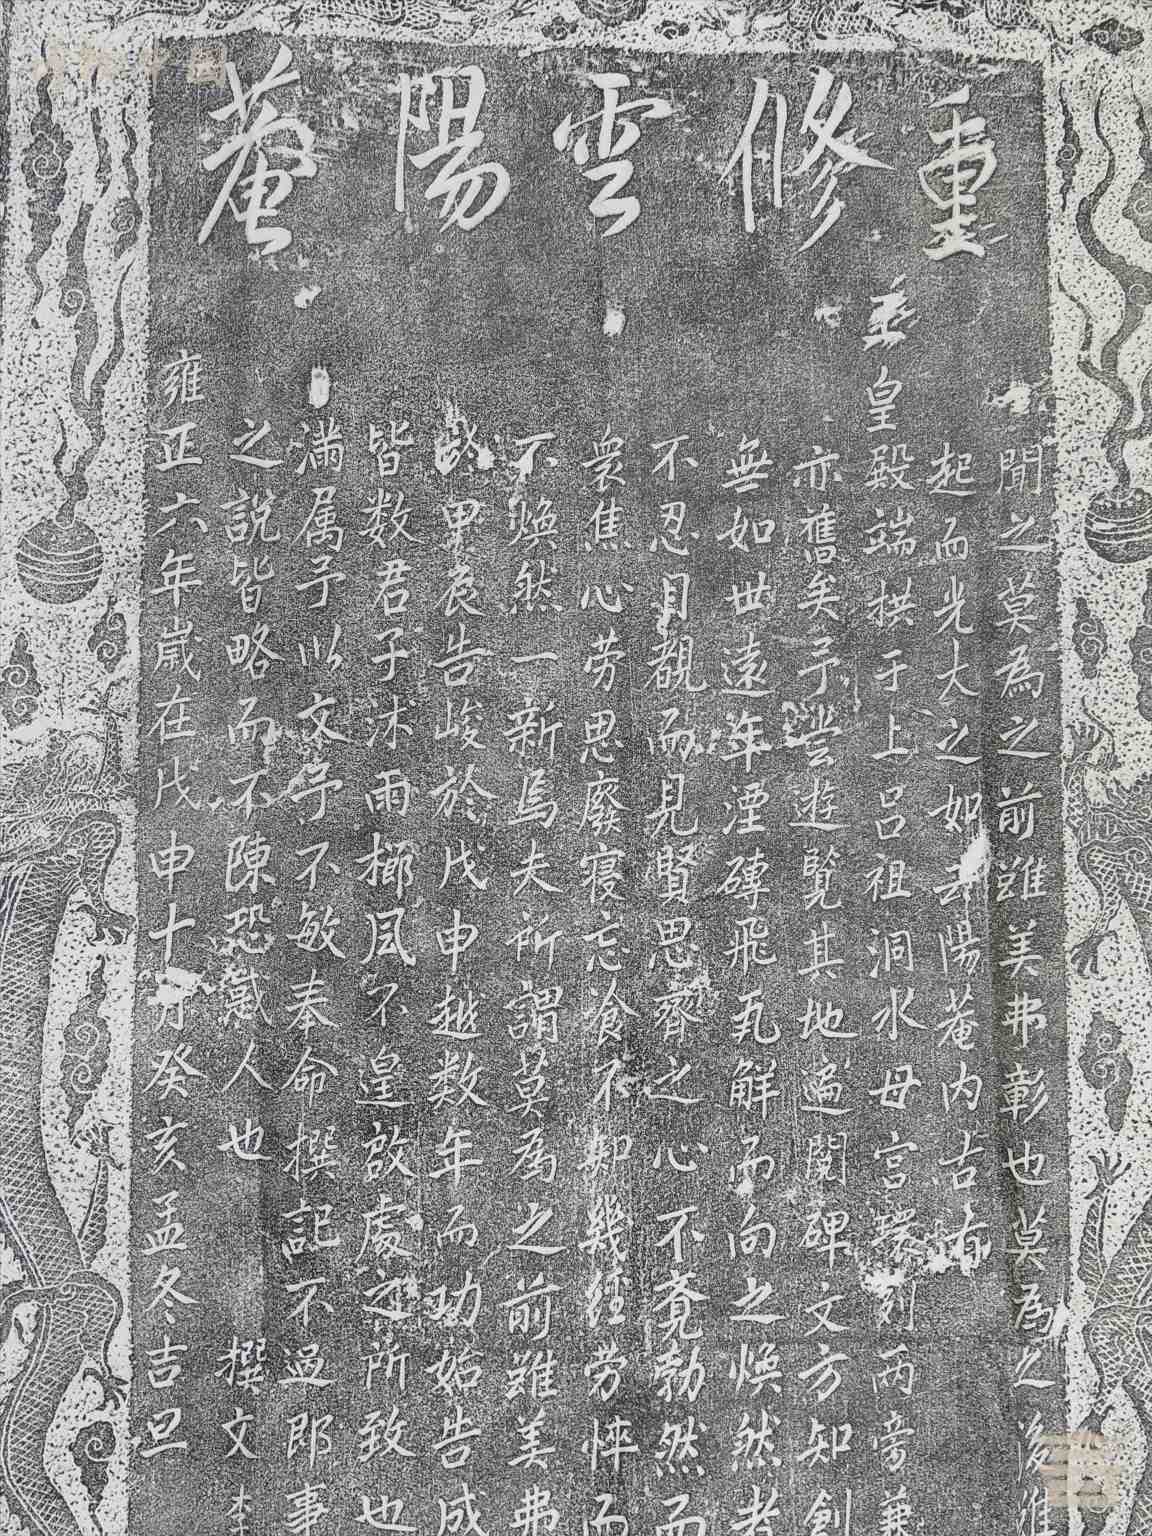 重修雲陽菴
聞之莫為之前雖美弗彰也莫為之後雖
起而光大之如雲陽菴內古有
玉皇殿端拱于上呂祖洞水母宮環列兩旁兼
亦舊矣予雲遊覽其地遍閱碑文方知創
無如世遠年湮磚飛瓦解而向之煥然者
不忍目覩而見賢思齊之心不覺勃然而
衆焦心劳思廢寝忘飡不知幾經劳悴而
不煥然一新焉夫所謂莫為之前雖美弗
甲辰告峻於戊申越数年而功始告成
皆数君子沐雨櫛風不遑啟處之所致也
滿属予以文予不敏奉命撰記不過郎事
之說皆略而不陳恐惑人也 撰文 李
雍正六年嵗在戊申十月癸亥孟冬吉旦